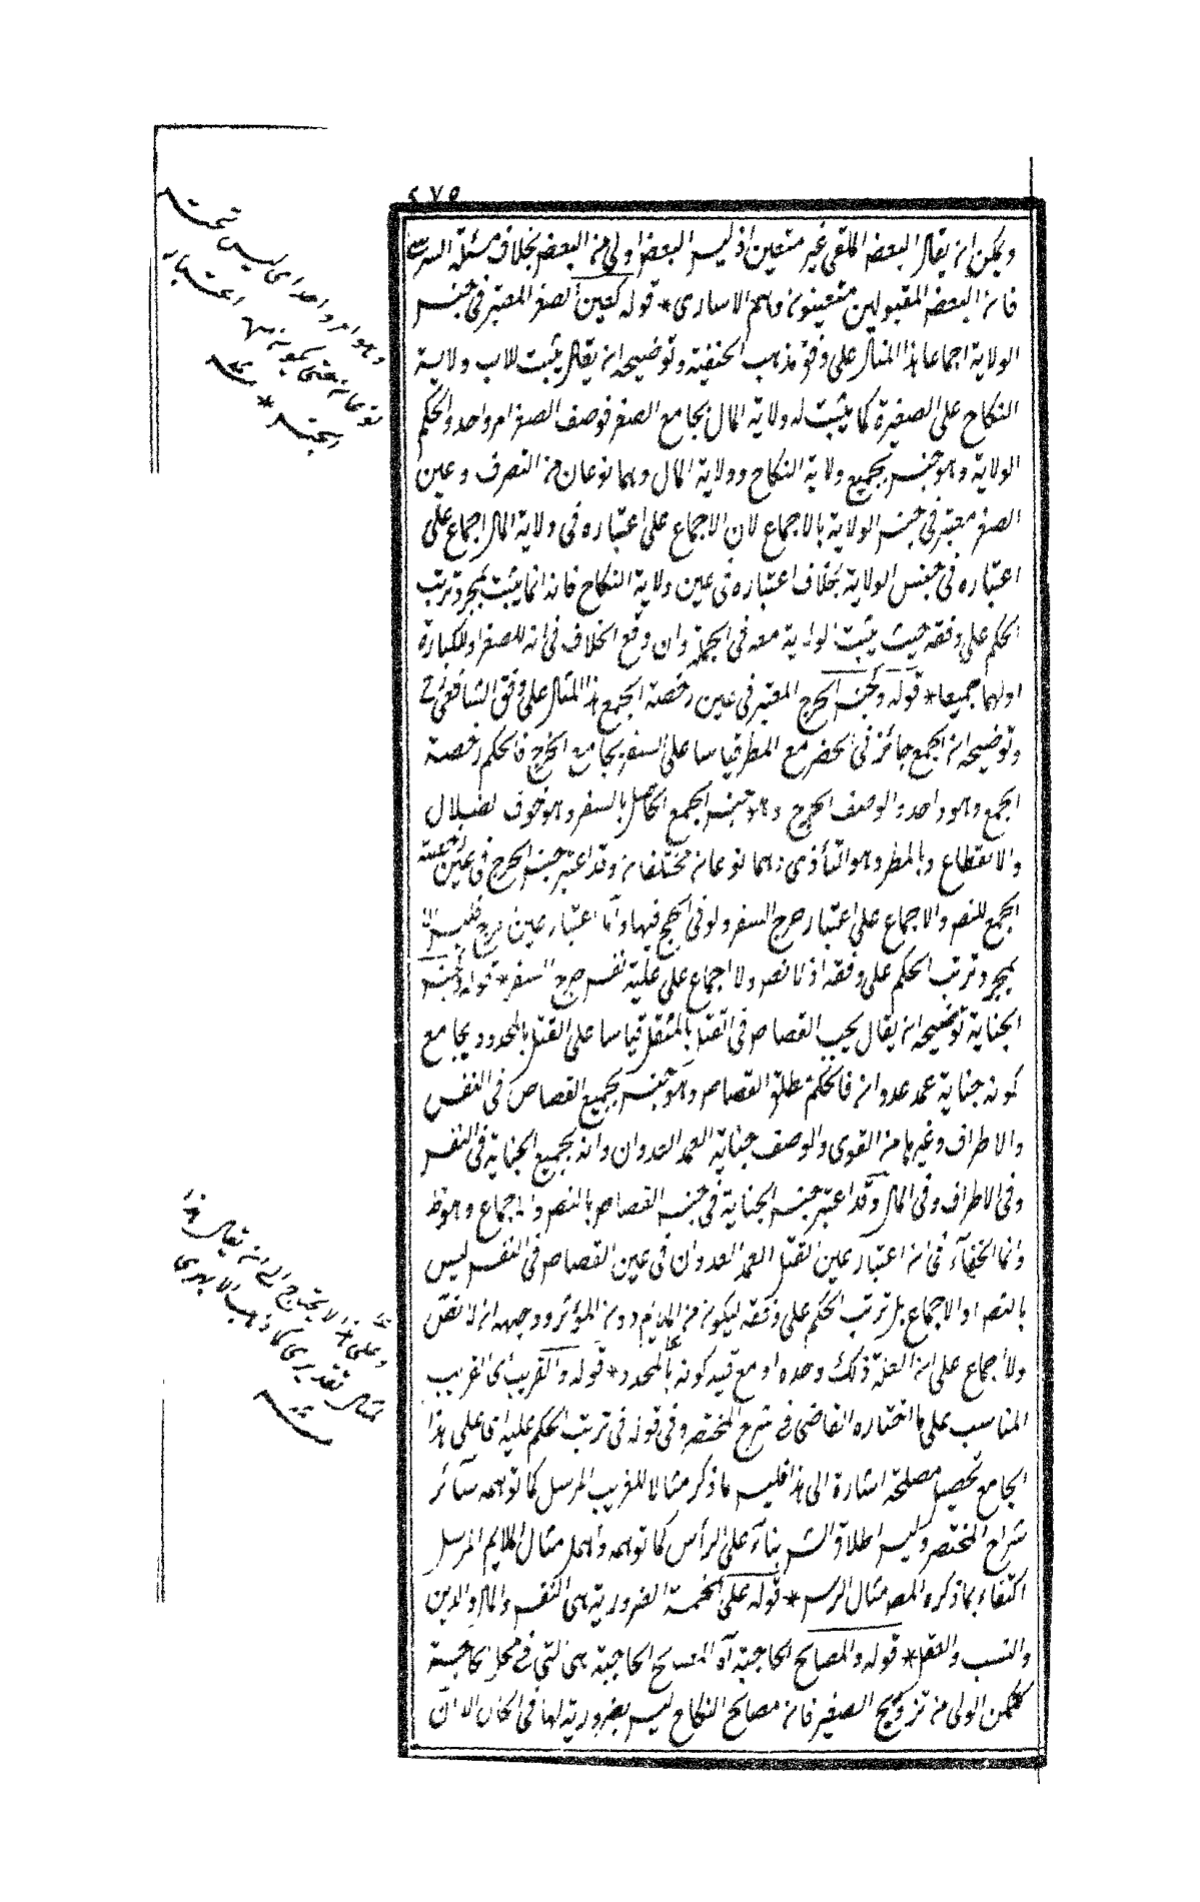 ٢٧٥
ويمكن ان يقال البعض الملقى غير متعين اذ ليس البعض اولى من البعض بخلاف مسئلة الترس
فان البعض المقبولين متعينون وهم الاسارى * قوله كعين الصغر المعتبر فى جنس
الولاية اجماعا هذا المثال على وفق مذهب الحنفية وتوضيحه ان يقال يثبت للاب ولاية
النكاح على الصغيرة كما يثبت له ولاية المال بجامع الصغر فوصف الصغر امر واحد والحكم
الولاية وهو جنس يجمع ولاية النكاح وولاية المال وهما نوعان من التصرف وعين
الصغر معتبر فى جنس الولاية بالاجماع لان الاجماع على اعتباره فى ولاية المال اجماع على
اعتباره فى جنس الولاية بخلاف اعتباره فى عين ولاية النكاح فانه انما يثبت بمجرد ترتب
الحكم على وفقه حيث يثبت الولاية معه فى الجملة وان وقع الخلاف فى انه للصغر او للبكارة
اولهما جميعا * قوله وكجنس الحرج المعتبر فى عين رخصة الجمع هذا المثال على وفق الشافعى
وتوضيحه ان الجمع جائز فى الحضر مع المطر قياسا على السفر بجامع الحرج فالحكم رخصة
الجمع وهو واحد والوصف الحرج وهو جنس يجمع الحاصل بالسفر وهو خوف الضلال
والانقطاع وبالمطر وهو التأذى وهما نوعان مختلفان وقد اعتبر جنس الحرج فى عين رخصة
الجمع للنص والاجماع على اعتبار حرج السفر ولو فى الحج فيها واما اعتبار عين الحرج فليس الا
بمجرد ترتب الحكم على وفقه اذ لا نص ولا اجماع على علية نفس حرج السفر * قوله وكجنس
الجناية توضيحه ان يقال يجب القصاص فى القتل بالمثقل قياسا على القتل بالمحدود بجامع
كونه جناية عمد عدوان فالحكم مطلق القصاص وهو جنس يجمع القصاص فى النفس
والاطراف وغيرها من القوى والوصف جناية العمد العدوان وانه يجمع الجناية فى النفس
وفى الاطراف وفى المال وقد اعتبر جنس الجناية فى جنس القصاص بالنص والاجماع وهو ظ
وانما الخفاء فى ان اعتبار عين القتل العمد العدوان فى عين القصاص فى النفس ليس
بالنص او الاجماع بل ترتب الحكم على وفقه ليكون من الملايم دون المؤثر ووجهه ان لا نص
ولا اجماع على ان العلة ذلك وحده او مع قيد كونه بالمحدد * قوله والغريب اى الغريب
المناسب على ما اختاره القاضى فى شرح المختصر وفى قوله فى ترتب الحكم عليه اى على هذا
الجامع تحصيل مصلحة اشارة الى هذا فليس ما ذكر مثالا للغريب المرسل كما توهمه سائر
شراح المختصر وليس اطلاق الشر بناء على الرأس كما توهمه واهمل مثال الملايم المرسل
اكتفاء بما ذكره المص مثال الترس * قوله على الخمسة الضرورية هى النفس والمال والدين
والنسب والعقل * قوله والمصالح الحاجية آه المصالح الحاجية هى التى فى محل الحاجة
كتمكن الولى من تزويج الصغير فان مصالح النكاح ليس بضرورية لها فى الحال الا ان
وهو امر واحد اى ليس تحته
نوعان حتى يكون اعتباره
الجنس *
وعلى هذا لا يحتاج الى ان يقال هذا
مثال تقديرى كما ذهب الابهرى
منه